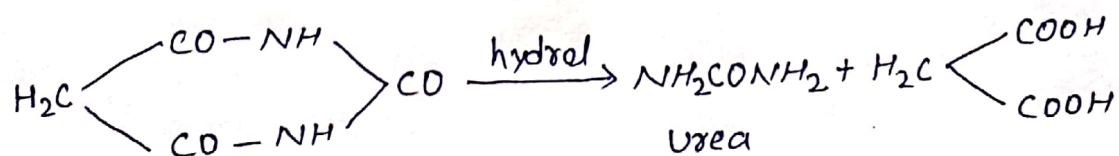 CO – NH COOH
H₂C CO hydrol → NH₂CONH₂ + H₂C
CO – NH COOH
Urea